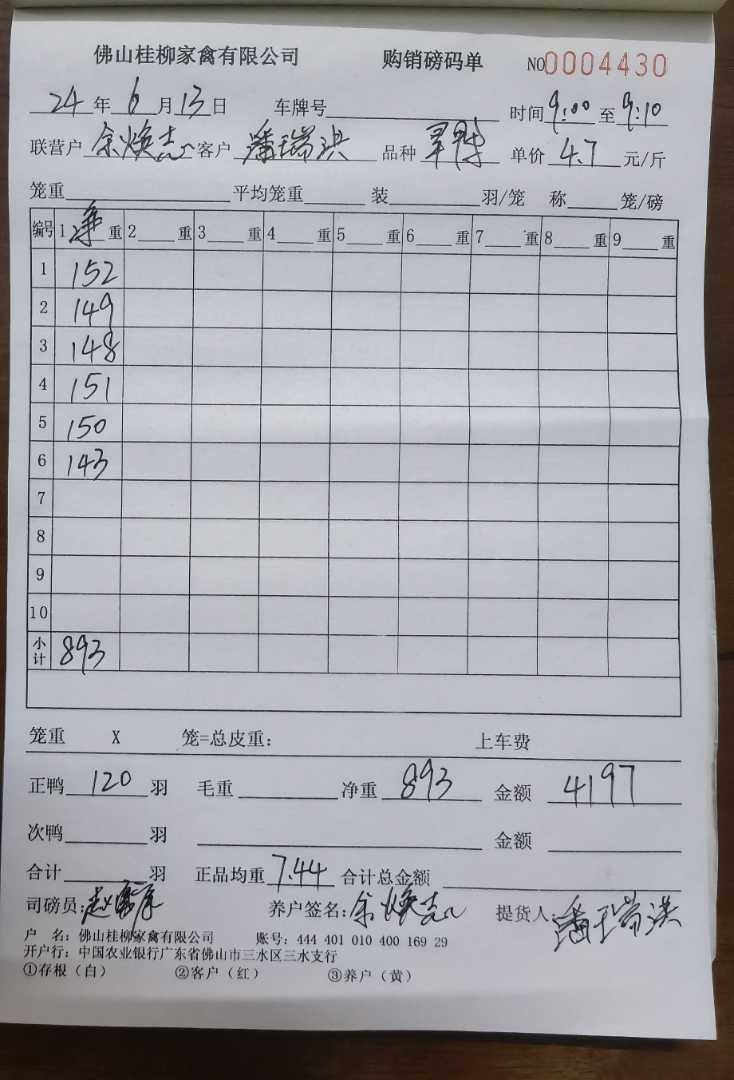 佛山桂柳家禽有限公司 购销磅码单 NO0004430
24年6月13日 车牌号 时间9:00至9:10
联营户 余焕志 客户 潘瑞洪 品种 单价 4.7 元/斤
笼重 平均笼重 装 羽/笼 称 笼/磅
编号 1净重 2 重 3 重 4 重 5 重 6 重 7 重 8 重 9 重
1 152
2 149
3 148
4 151
5 150
6 143
7
8
9
10
小计 893
笼重 X 笼=总皮重: 上车费
正鸭 120 羽 毛重 净重 893 金额 4197
次鸭 羽 金额
合计 羽 正品均重 7.44 合计总金额
司磅员: 赵 养户签名: 余焕志 提货人 潘瑞洪
户 名: 佛山桂柳家禽有限公司 账号: 444 401 010 400 169 29
开户行: 中国农业银行广东省佛山市三水区三水支行
①存根（白） ②客户（红） ③养户（黄）